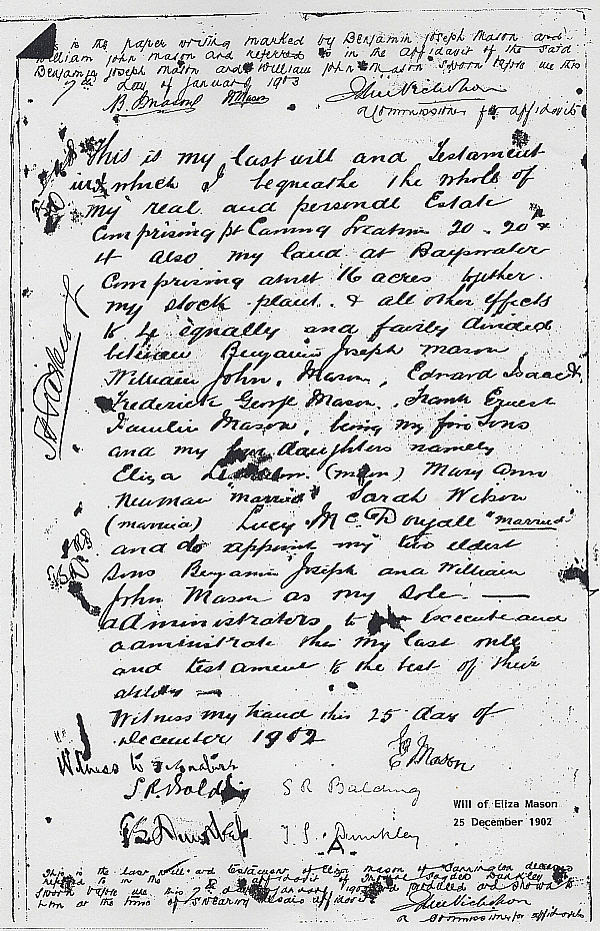 is is the paper writing marked by Benjamin Joseph Mason and
William John Mason and referred to in the Affidavit of the said
Benjamin Joseph Mason and William John Mason sworn before me this
7th day of January 1903
B J Mason W Mason
a Commissioner for affidavits
This is my last will and Testament
in which I bequeathe the whole of
my real and personal Estate
Comprising pt Canning Location 20 - 20 &
4 also my land at Bayswater
Comprising about 16 acres together
my stock plant & all other effects
to be equally and fairly divided
between Benjamin Joseph Mason
William John, Mason, Edward Isaac &
Frederick George Mason, Frank Ernest
Mason, being my five Sons
and my four daughters namely
Eliza (main) Mary Ann
Newman "married" Sarah Wilson
(married) Lucy McDougall "married"
and do appoint my two eldest
sons Benjamin Joseph and William
John Mason as my sole —
administrators to Execute and
administrate this my last will
and testament to the best of their
ability —
Witness my hand this 25 day of
December 1902
Witness to signature E Mason
S R Balding S R Balding
Will of Eliza Mason
25 December 1902
T S Dunkley
This is the last will and testament of Eliza Mason of Cannington deceased
referred to in the affidavit of Dunkley
sworn before me this 7th day of January 1903 and produced and shown to
him at the time of swearing said affidavit
a Commissioner for affidavits